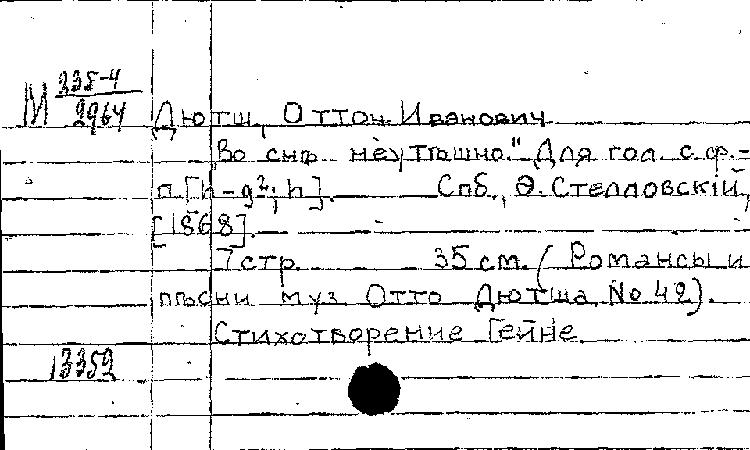 М 335-4
2964
Дютш, Оттон Иванович
"Во сне неутешно." Для гол. с ф.-
п. [h - g²; h]. Спб., Ө. Стелловскій,
[1868].
7 стр. 35 см. (Романсы и
пѣсни муз. Отто Дютша, № 42).
Стихотворение Гейне.
13352